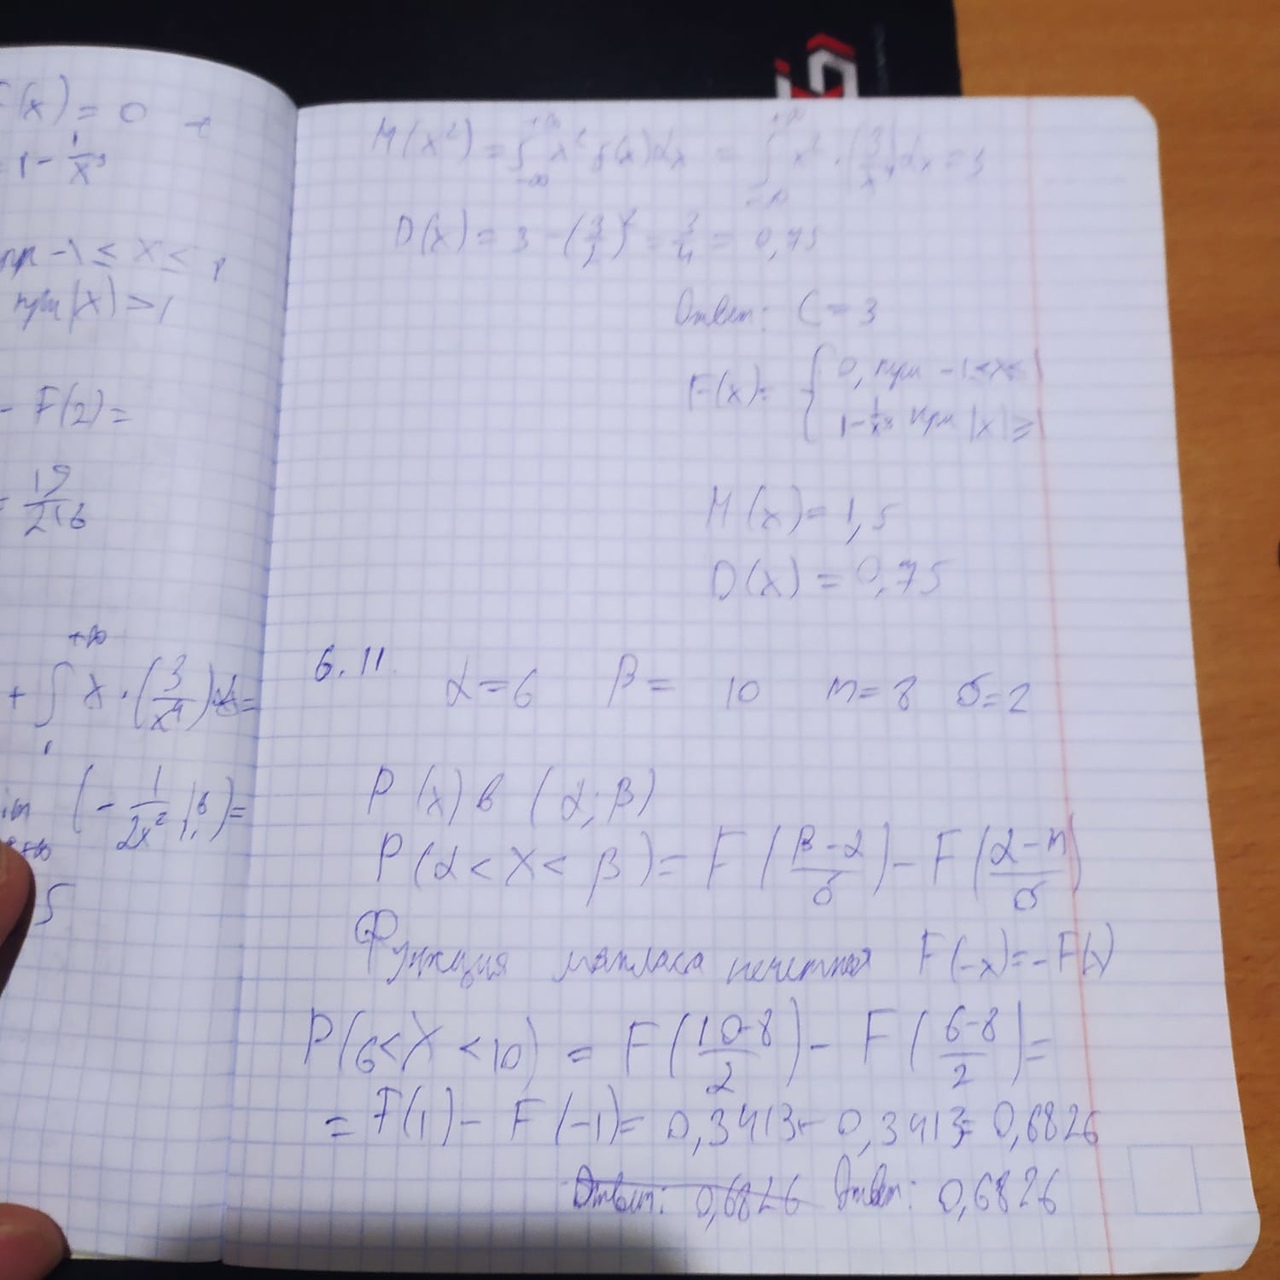 F(x) = 0
= 1 - 1/x³
при -1 ≤ x ≤ 1
при |x| > 1
- F(2) =
= 19/216
+ ∫₁^{+∞} x · (3/x⁴) dx =
lim (- 1/2x² |₁ᵇ) =
5
M(x²) = ∫_{-∞}^{+∞} x² f(x) dx = ∫_{-∞}^{+∞} x² · (3/x⁴) dx = 3
D(x) = 3 - (3/2)² = 3/4 = 0,75
Ответ: C = 3
F(x) = { 0, при -1 < x < 1
1 - 1/x³ при |x| ≥ 1
M(x) = 1,5
D(x) = 0,75
6.11.
α = 6 β = 10 m = 8 σ = 2
P (x) в (α; β)
P (α < X < β) = F (β-α/σ) - F (α-m/σ)
Функция лапласа нечетная F(-x) = -F(x)
P(6 < X < 10) = F (10-8/2) - F (6-8/2) =
= F(1) - F(-1) = 0,3413 + 0,3413 = 0,6826
Ответ: 0,6826 Ответ: 0,6826